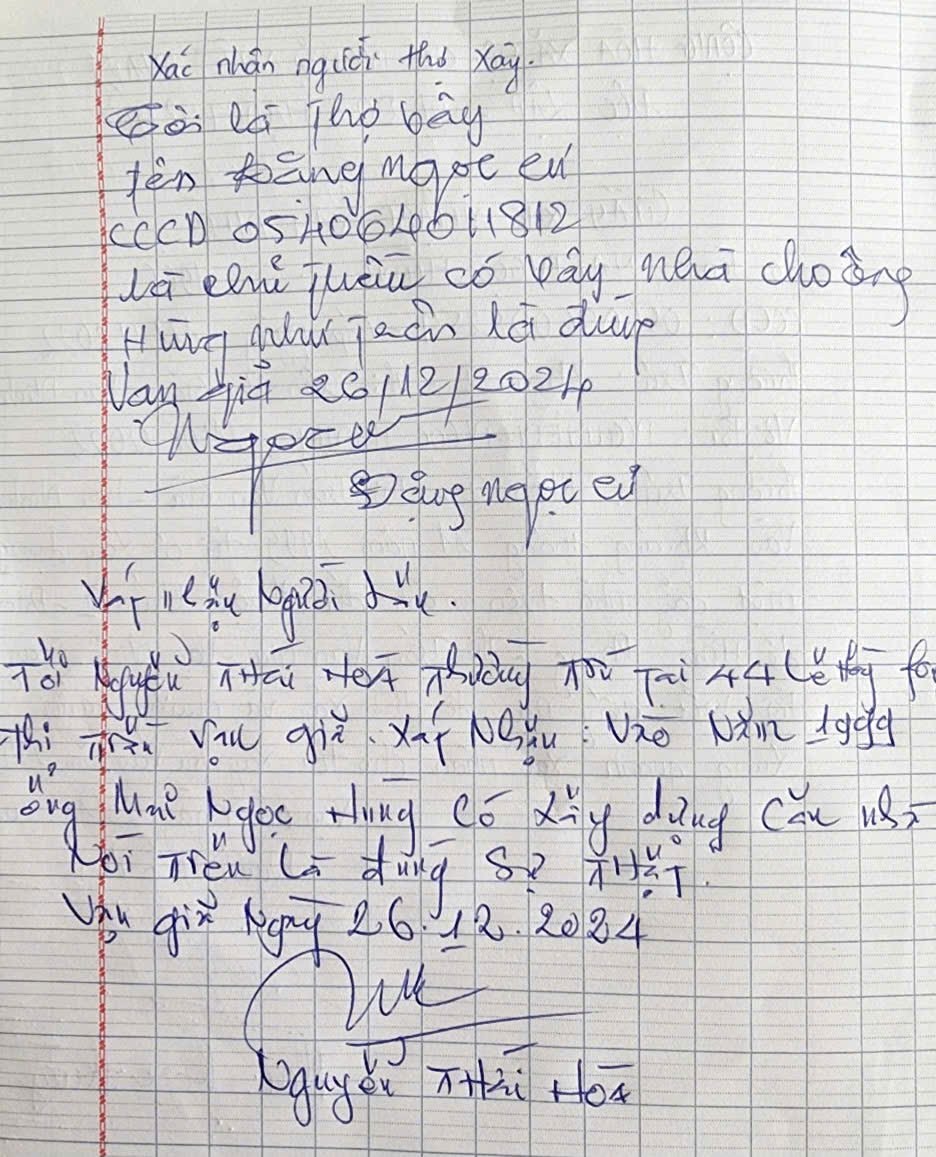 Xác nhận người thợ xây.
Tôi là Thợ bây
tên Đăng Ngọc cứ
CCCD 054064011812
là chủ thầu có bây nhà cho ông
Hùng như trên là đúng
Vạn giã 26/12/2024
Ngọc cứ
Đặng ngọc cứ
Xác nhận Người dân.
Tôi Nguyễn Thái Hoà Thường Trú Tại 44 Lê Hồng Fo
Thị trấn Vạn giã. Xác Nhận: Vào Năm 1999
ông Mai Ngọc Hùng Có Xây dựng Căn nhà
Nói Trên Là đúng Sự Thật.
Vạn giã Ngày 26.12.2024
Nguyễn Thái Hoà